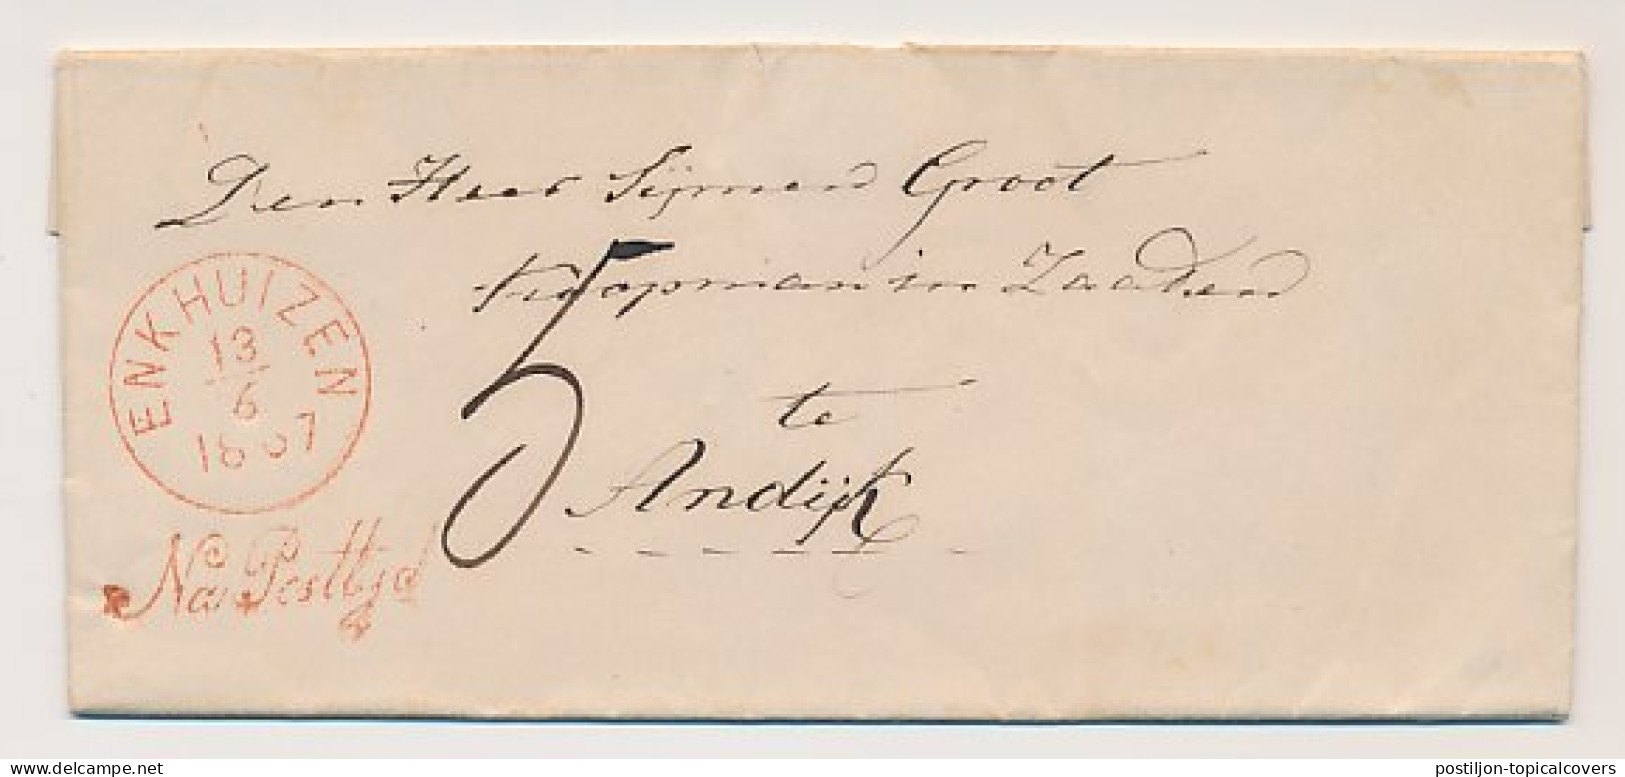 Den Heer Sijmen Groot
Koopman in Zaaden
5
te
Andijk
ENKHUIZEN
13
6
1867
Na Posttijd
www.delcampe.net
postiljon-topicalcovers